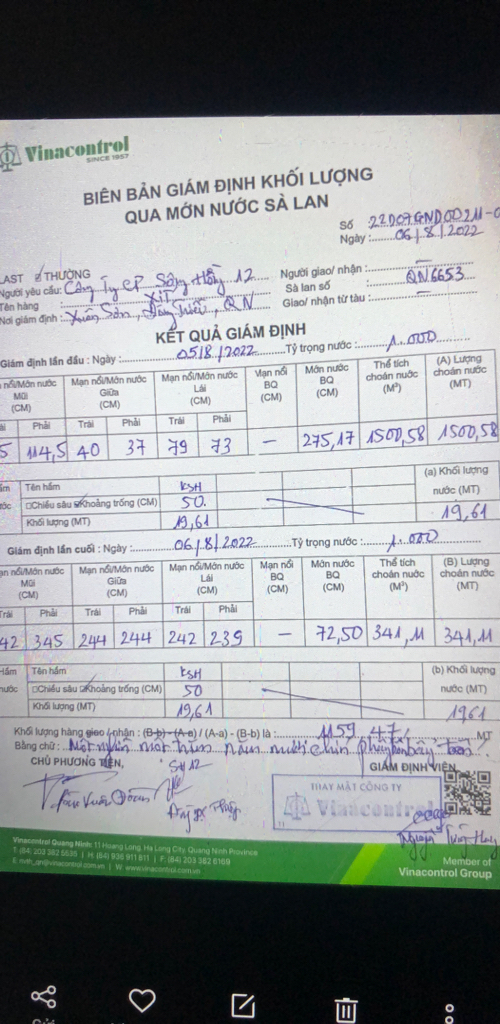 Vinacontrol
SINCE 1957
BIÊN BẢN GIÁM ĐỊNH KHỐI LƯỢNG
QUA MỚN NƯỚC SÀ LAN
Số 22D07GND00211-0
Ngày : 06/8/2022
LAST THƯỜNG
Người yêu cầu: Công Ty CP Sông Hồng 12
Người giao/ nhận : —
Tên hàng : XÍT
Sà lan số : QN6653
Nơi giám định : Xuân Sơn, Đông Triều, QN
Giao/ nhận từ tàu : —
KẾT QUẢ GIÁM ĐỊNH
Giám định lần đầu : Ngày : 05/8/2022 Tỷ trọng nước : 1.000
nổi/Mớn nước Mũi (CM) Mạn nổi/Mớn nước Giữa (CM) Mạn nổi/Mớn nước Lái (CM) Mạn nổi BQ (CM) Mớn nước BQ (CM) Thể tích choán nước (M³) (A) Lượng choán nước (MT)
ái Phải Trái Phải Trái Phải
5 114,5 40 37 79 73 — 275,17 1500,58 1500,58
Tên hầm KSH (a) Khối lượng
Chiều sâu Khoảng trống (CM) 50. nước (MT)
Khối lượng (MT) 19,61 19,61
Giám định lần cuối : Ngày : 06/8/2022 Tỷ trọng nước : 1.000
ạn nổi/Mớn nước Mũi (CM) Mạn nổi/Mớn nước Giữa (CM) Mạn nổi/Mớn nước Lái (CM) Mạn nổi BQ (CM) Mớn nước BQ (CM) Thể tích choán nước (M³) (B) Lượng choán nước (MT)
Trái Phải Trái Phải Trái Phải
42 345 244 244 242 239 — 72,50 341,11 341,11
Hầm Tên hầm KSH (b) Khối lượng
nước Chiều sâu Khoảng trống (CM) 50 nước (MT)
Khối lượng (MT) 19,61 1961
Khối lượng hàng giao / nhận : (B-b) - (A-a) / (A-a) - (B-b) là : 1159,47 MT
Bằng chữ : Một nghìn một trăm năm mươi chín phẩy bốn bảy tấn
CHỦ PHƯƠNG TIỆN, SH 12 GIÁM ĐỊNH VIÊN,
THAY MẶT CÔNG TY
Vinacontrol
Vinacontrol Quảng Ninh: 11 Hoang Long, Ha Long City, Quang Ninh Province
T: (84) 203 382 5635 | H: (84) 936 911 811 | F: (84) 203 382 6169
W: www.vinacontrol.com.vn
Member of
Vinacontrol Group